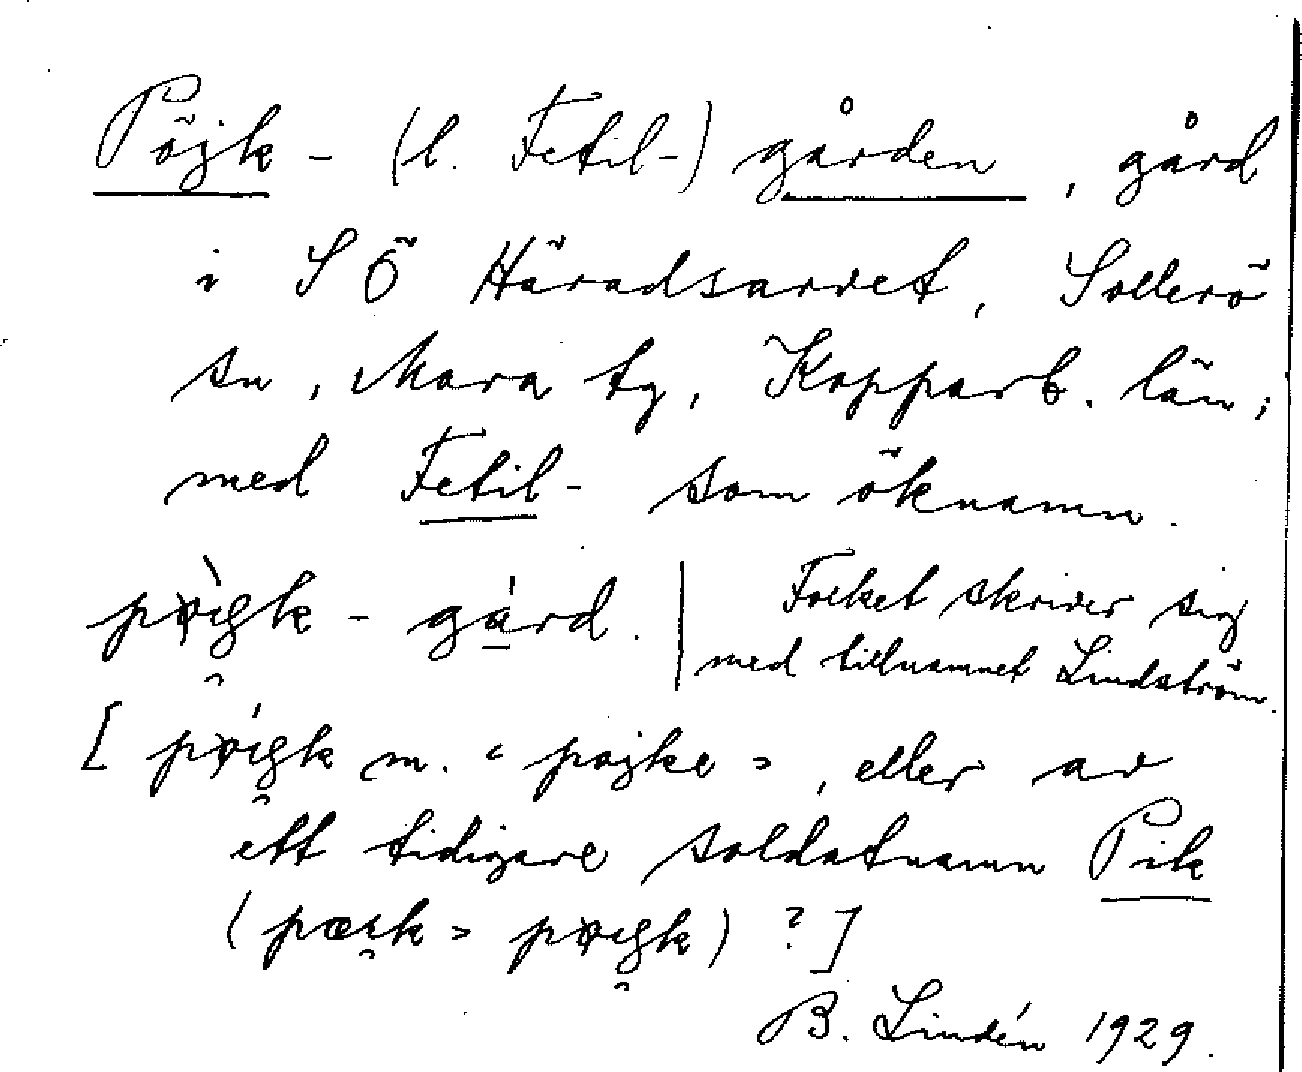 Pöjk- (l. Fetil-) gården, gård
i SÖ Häradsarvet, Sollerö
sn, Mora tg, Kopparb. län;
med Fetil- som öknamn.
pøi̯k - gård. | Folket skriver sig
med tillnamnet Lindström.
[pøi̯k m. "pojke", eller av
ett tidigare soldatnamn Pik
(pæi̯k > pøi̯k) ?]
B. Lindén 1929.